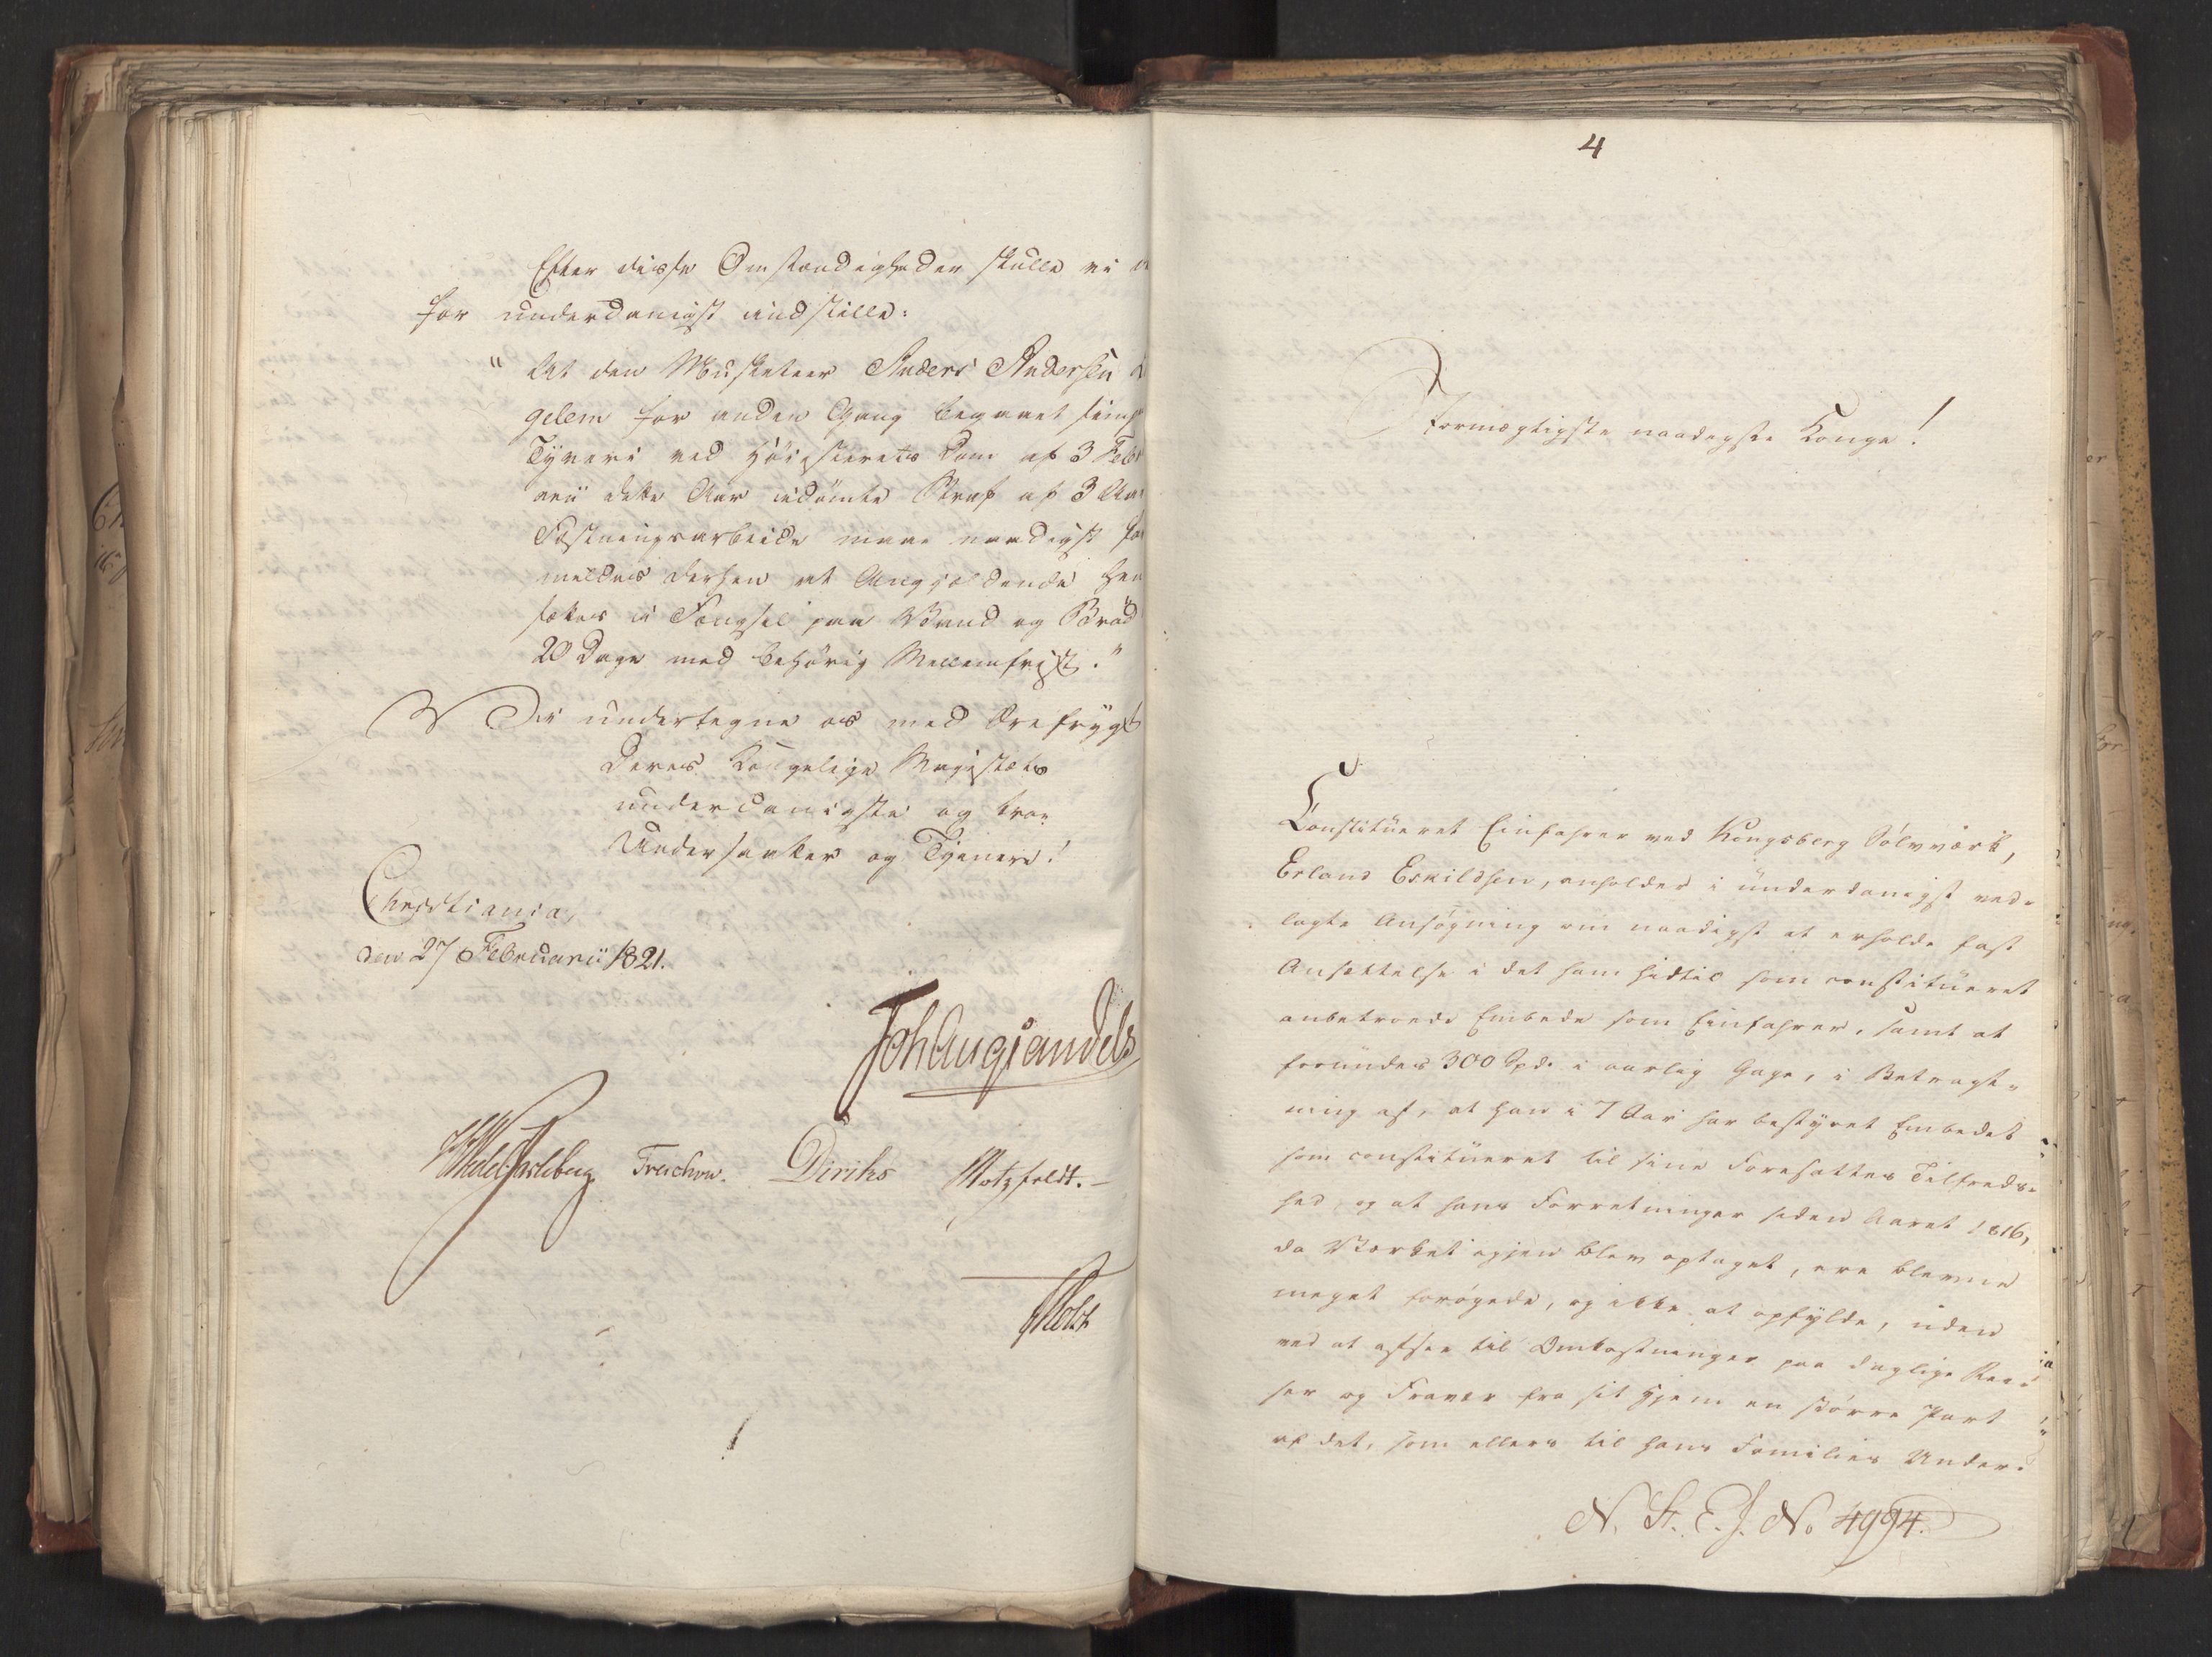 Efter disse Omstændigheder skulle vi
for underdanigst indstille:
"At den Musketeer Anders Andersen
gelem for anden Gang begaaet simp
Tyveri ved Høiesterets Dom af 3 Febr
arii dette Aar idømte Straf af 3 Aar
Fæstningsarbeide maae naadigst for
mildes derhen at Angjældende hen
sættes i Fængsel paa Vand og Brød
20 Dage med behørig Mellemfrist."
Vi undertegne os med Ærefrygt
Deres Kongelige Majestæts
underdanigste og troe
Undersaatter og Tjenere!
Christiania,
den 27 Februarii 1821.
Joh Aug Sandels
Wedel Jarlsberg Treschow. Diriks Motzfeldt.
Holst
4
Stormægtigste naadigste Konge!
Constitueret Einfahrer ved Kongsberg Sølvværk,
Erland Eskildsen, anholder i underdanigst ved-
lagte Ansøgning om naadigst at erholde fast
Ansættelse i det ham hidtil som constitueret
anbetroede Embede som Einfahrer, samt at
forundes 300 Spd. i aarlig Gage, i Betragt-
ning af, at han i 7 Aar har bestyret Embedet
som constitueret til sine Foresattes Tilfreds-
hed, og at hans Forretninger siden Aaret 1816,
da Værket igjen blev optaget, ere blevne
meget forøgede, og ikke at opfylde, uden
ved at afsee til Omkostninger paa daglige Rei-
ser og Fravær fra sit Hjem en større Part
af det, som ellers til hans Families Under-
N. St. E. J. No 4994.